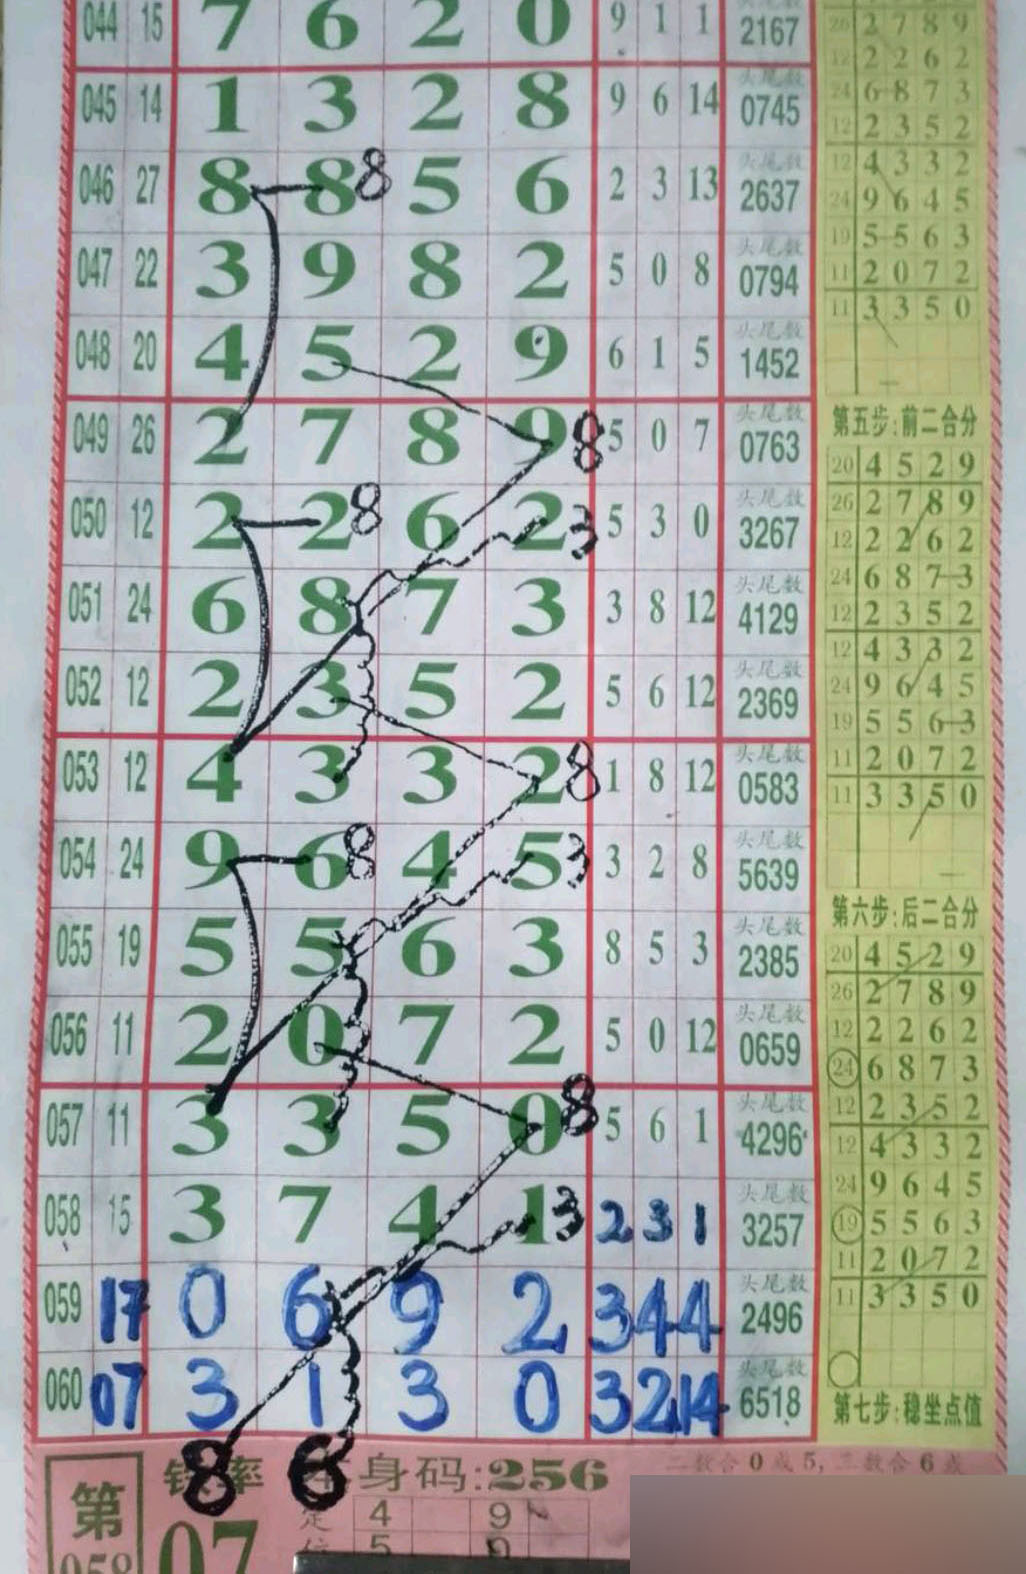 044 15 7 6 2 0 9 1 1 2167
045 14 1 3 2 8 9 6 14 头尾数 0745
046 27 8 8 8 5 6 2 3 13 头尾数 2637
047 22 3 9 8 2 5 0 8 头尾数 0794
048 20 4 5 2 9 6 1 5 头尾数 1452
049 26 2 7 8 9 8 5 0 7 头尾数 0763
050 12 2 2 8 6 2 3 5 3 0 头尾数 3267
051 24 6 8 7 3 3 8 12 头尾数 4129
052 12 2 3 5 2 5 6 12 头尾数 2369
053 12 4 3 3 2 8 1 8 12 头尾数 0583
054 24 9 6 8 4 5 3 3 2 8 头尾数 5639
055 19 5 5 6 3 8 5 3 头尾数 2385
056 11 2 0 7 2 5 0 12 头尾数 0659
057 11 3 3 5 0 8 5 6 1 头尾数 4296
058 15 3 7 4 1 3 2 3 1 头尾数 3257
059 17 0 6 9 2 3 4 4 头尾数 2496
060 07 3 1 3 0 3 2 14 头尾数 6518
8 6
身码:256
二数合0或5,三数合6或
第 058
07
定 4 9
位 5 0
26 2 7 8 9
12 2 2 6 2
24 6 8 7 3
12 2 3 5 2
12 4 3 3 2
24 9 6 4 5
19 5 5 6 3
11 2 0 7 2
11 3 3 5 0
第五步:前二合分
20 4 5 2 9
26 2 7 8 9
12 2 2 6 2
24 6 8 7 3
12 2 3 5 2
12 4 3 3 2
24 9 6 4 5
19 5 5 6 3
11 2 0 7 2
11 3 3 5 0
第六步:后二合分
20 4 5 2 9
26 2 7 8 9
12 2 2 6 2
24 6 8 7 3
12 2 3 5 2
12 4 3 3 2
24 9 6 4 5
19 5 5 6 3
11 2 0 7 2
11 3 3 5 0
第七步:稳坐点值